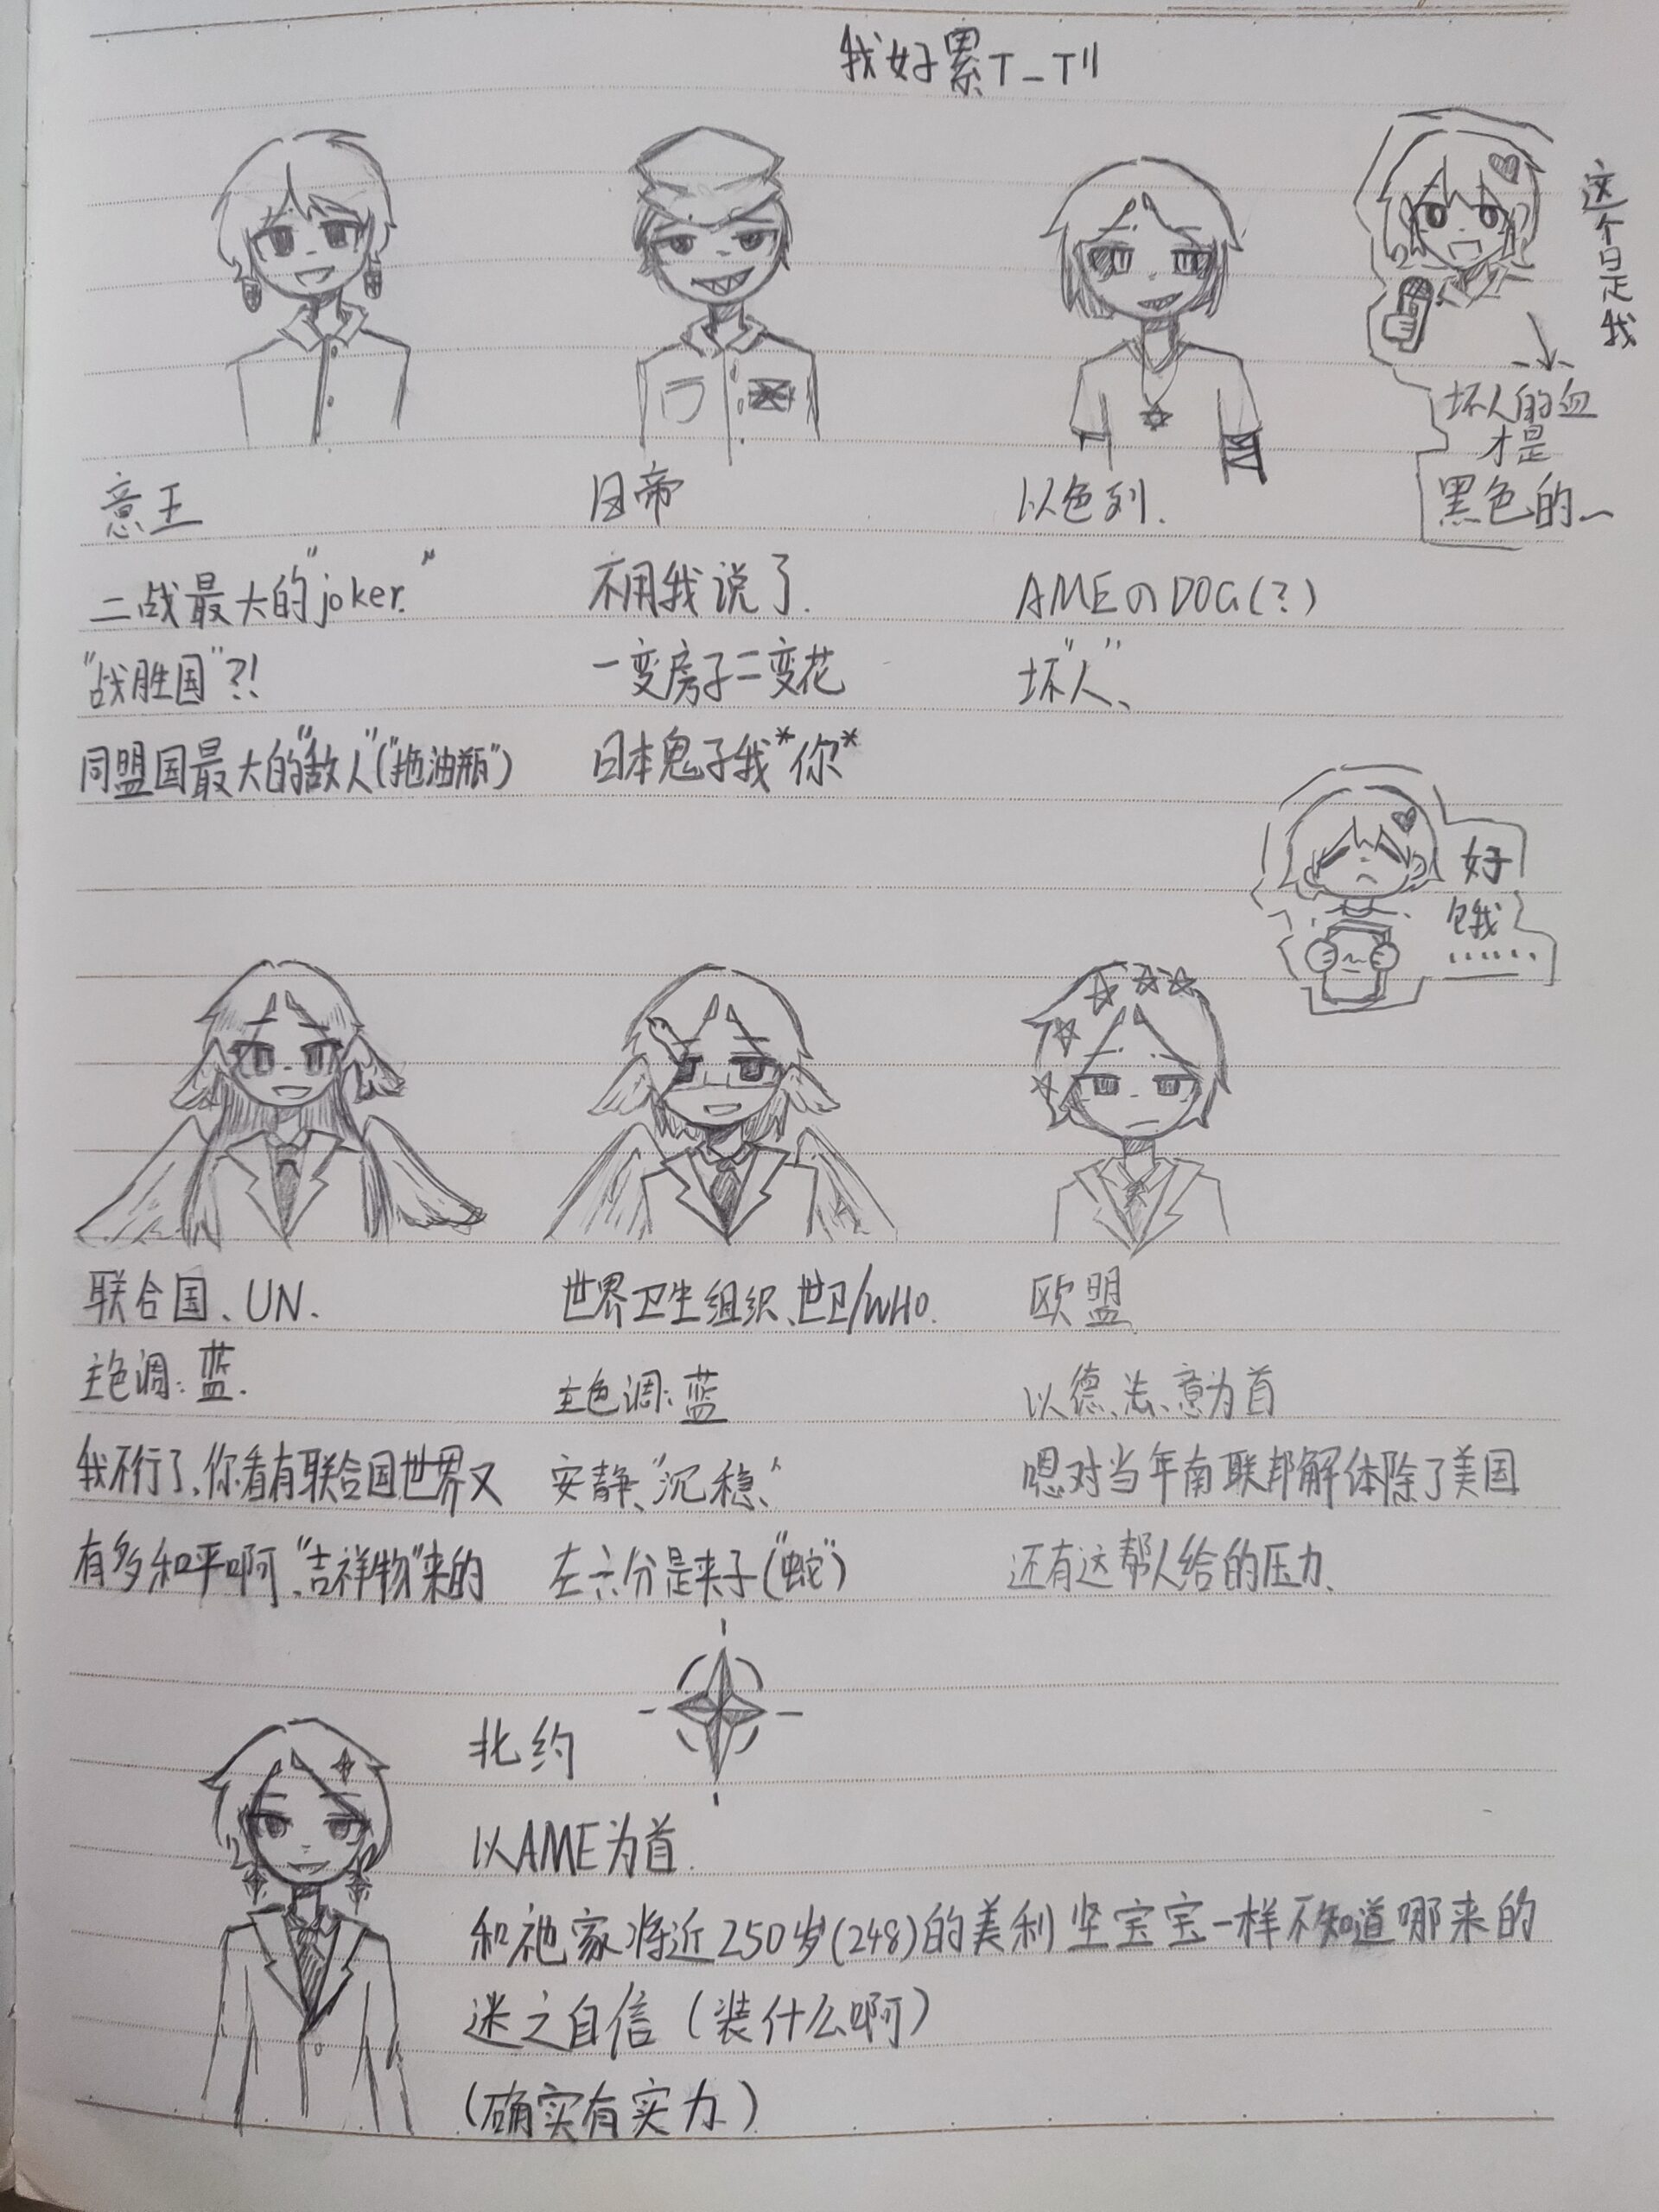 我好累T_T
这个是我
坏人的血
才是
黑色的
意王
二战最大的"joker."
"战胜国"?!
同盟国最大的"敌人"("拖油瓶")
日帝
不用我说了.
一变房子二变花
日本鬼子我*你*
以色列.
AMEのDOG(?)
"坏人"、
好
饿
......
联合国、UN.
主色调:蓝.
我不行了,你看有联合国世界又
有多和平啊,"吉祥物"来的
世界卫生组织、世卫/WHO.
主色调:蓝
安静、"沉稳"
左六分是夹子("蛇")
欧盟
以德、法、意为首
嗯对当年南联邦解体除了美国
还有这帮人给的压力、
北约
以AME为首.
和祂家将近250岁(248)的美利坚宝宝一样不知道哪来的
迷之自信(装什么啊)
(确实有实力.)